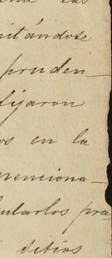 itándose
pruden-
fijaron
os en la
venciona-
ularlos pra
sitios